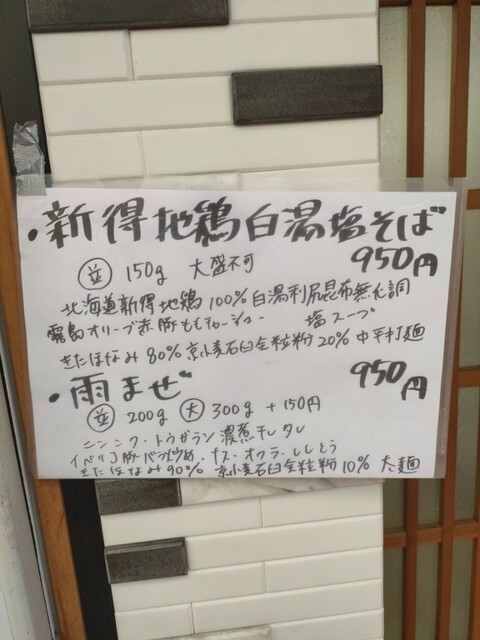 ・新得地鶏白湯塩そば
950円
並 150g 大盛不可
北海道新得地鶏100%白湯利尻昆布無化調
霧島オリーブ赤豚ももチャーシュー 塩スープ
きたほなみ80%京小麦石臼全粒粉20%中平打麺
・雨まぜ 950円
並 200g 大 300g +150円
ニンニク・トウガラシ 濃煮干しタレ
イベリコ豚バラ炒め・ナス・オクラ・ししとう
きたほなみ90%京小麦石臼全粒粉10% 太麺